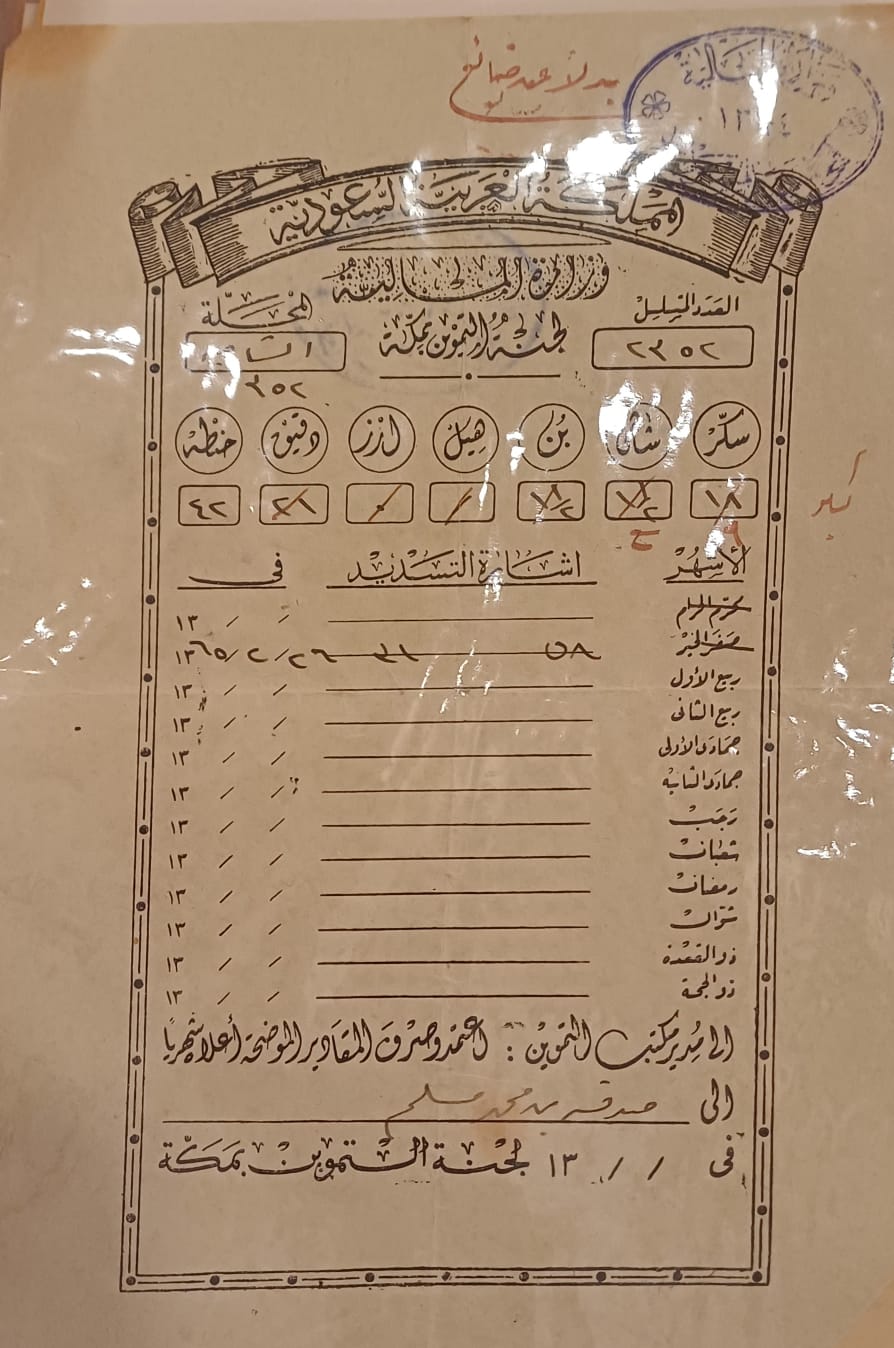 بدلا عن ضائع
وزارة المالية
المملكة العربية السعودية
وزارة المالية
العدد المتسلسل
لجنة التموين بمكة
المحلة
٢٣٥٢
٣٥٢
سكر شاي بن هيل ارز دقيق حنطه
١٨ ١/٢ ١٨/٢ / ٠ ٢١ ٤٢
الأشهر اشارة التسديد في
محرم الحرام / / ١٣
صفر الخير ٥٨ ٣١ ٢٦ / ٢ / ١٣٦٥
ربيع الأول / / ١٣
ربيع الثاني / / ١٣
جمادى الأولى / / ١٣
جمادى الثانية / / ١٣
رجب / / ١٣
شعبان / / ١٣
رمضان / / ١٣
شوال / / ١٣
ذو القعدة / / ١٣
ذو الحجة / / ١٣
الى مدير مكتب التموين : اعتمدوا صرف المقادير الموضحة أعلا شهريا
الى صدقه بن محمد مسلم
في / / ١٣ لجنة التموين بمكة